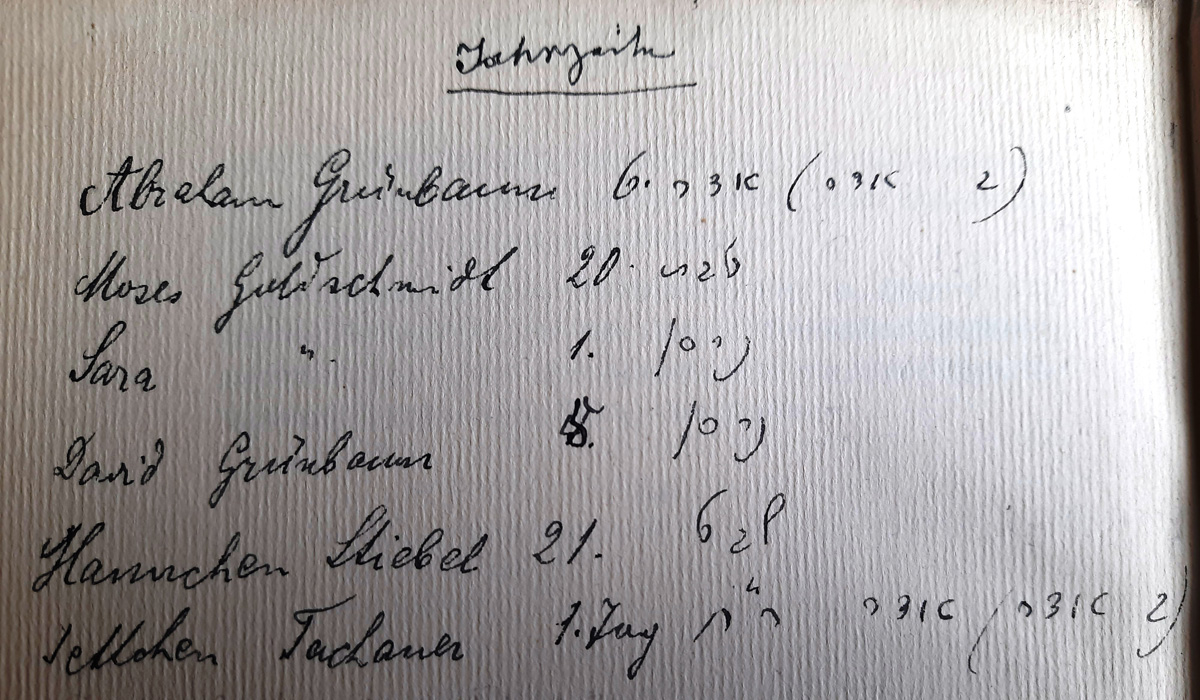 Jahrzeiten
Abraham Grünbaum 6. אדר (אדר 2)
Moses Goldschmidt 20. טבת
Sara " 1. ניסן
David Grünbaum ניסן
Hannchen Stiebel 21. שבט
Jettchen Tachauer 1. Tag ר״ח אדר (אדר 2)